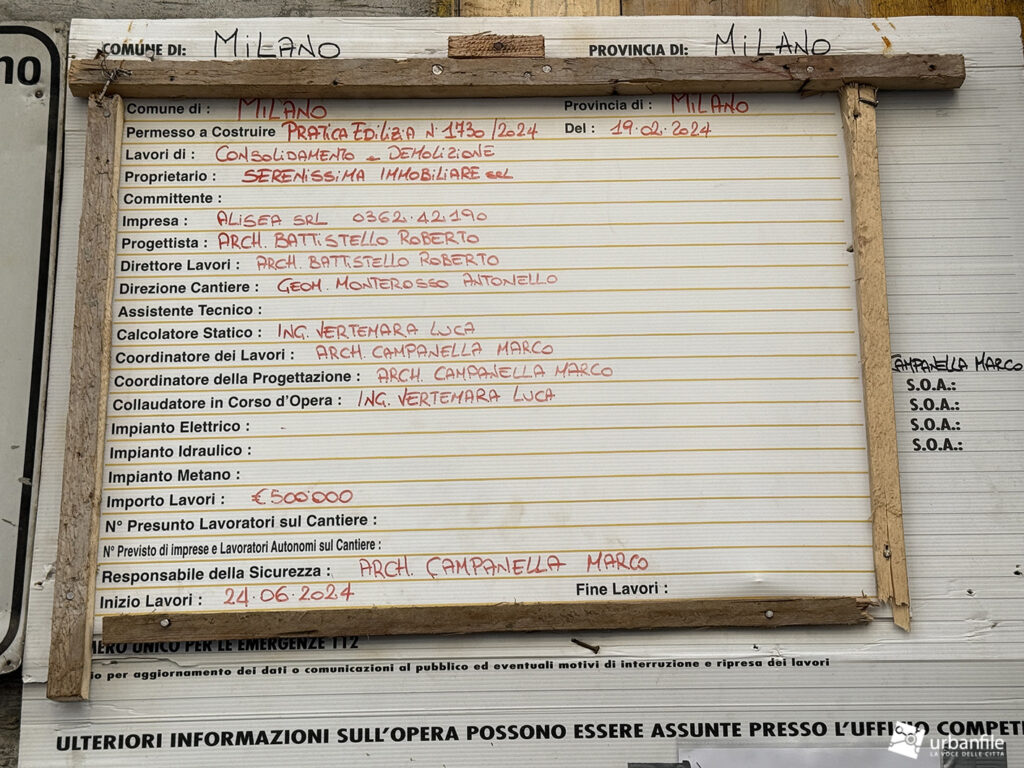 no
COMUNE DI: MILANO PROVINCIA DI: MILANO
Comune di : MILANO Provincia di : MILANO
Permesso a Costruire PRATICA EDILIZIA N. 1730/2024 Del : 19.02.2024
Lavori di : CONSOLIDAMENTO e DEMOLIZIONE
Proprietario : SERENISSIMA IMMOBILIARE SRL
Committente :
Impresa : ALISEA SRL 0362.42.190
Progettista : ARCH. BATTISTELLO ROBERTO
Direttore Lavori : ARCH. BATTISTELLO ROBERTO
Direzione Cantiere : GEOM. MONTEROSSO ANTONELLO
Assistente Tecnico :
Calcolatore Statico : ING. VERTEMARA LUCA
Coordinatore dei Lavori : ARCH. CAMPANELLA MARCO
CAMPANELLA MARCO
Coordinatore della Progettazione : ARCH. CAMPANELLA MARCO
S.O.A.:
Collaudatore in Corso d'Opera : ING. VERTEMARA LUCA
S.O.A.:
Impianto Elettrico :
S.O.A.:
Impianto Idraulico :
S.O.A.:
Impianto Metano :
Importo Lavori : €500'000
N° Presunto Lavoratori sul Cantiere :
N° Previsto di imprese e Lavoratori Autonomi sul Cantiere :
Responsabile della Sicurezza : ARCH. CAMPANELLA MARCO
Inizio Lavori : 24.06.2024 Fine Lavori :
MERO UNICO PER LE EMERGENZE 112
io per aggiornamento dei dati o comunicazioni al pubblico ed eventuali motivi di interruzione e ripresa dei lavori
ULTERIORI INFORMAZIONI SULL'OPERA POSSONO ESSERE ASSUNTE PRESSO L'UFFICIO COMPETE
urbanfile
LA VOCE DELLE CITTÀ